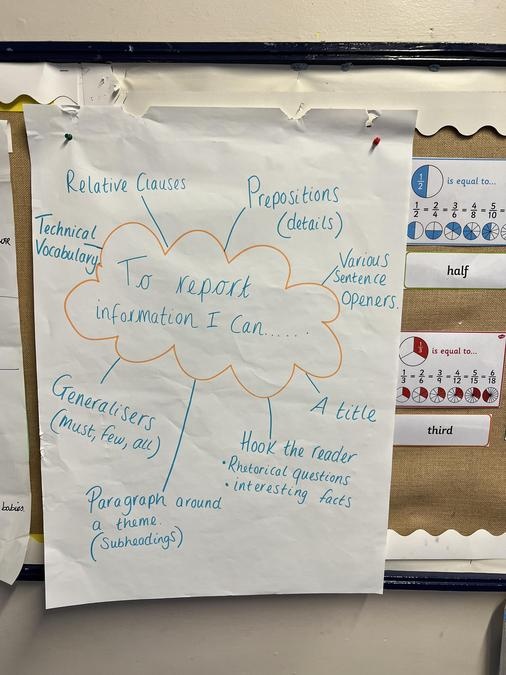 Relative Clauses
Prepositions
(details)
Technical
Vocabulary
Various
Sentence
Openers.
To report
information I Can......
Generalisers
(must, few, all)
A title
Hook the reader
• Rhetorical questions
• interesting facts
Paragraph around
a theme.
(Subheadings)
babies.
1/2 is equal to...
1/2 = 2/4 = 3/6 = 4/8 = 5/10 =
half
1/3 is equal to...
1/3 = 2/6 = 3/9 = 4/12 = 5/15 = 6/18
third